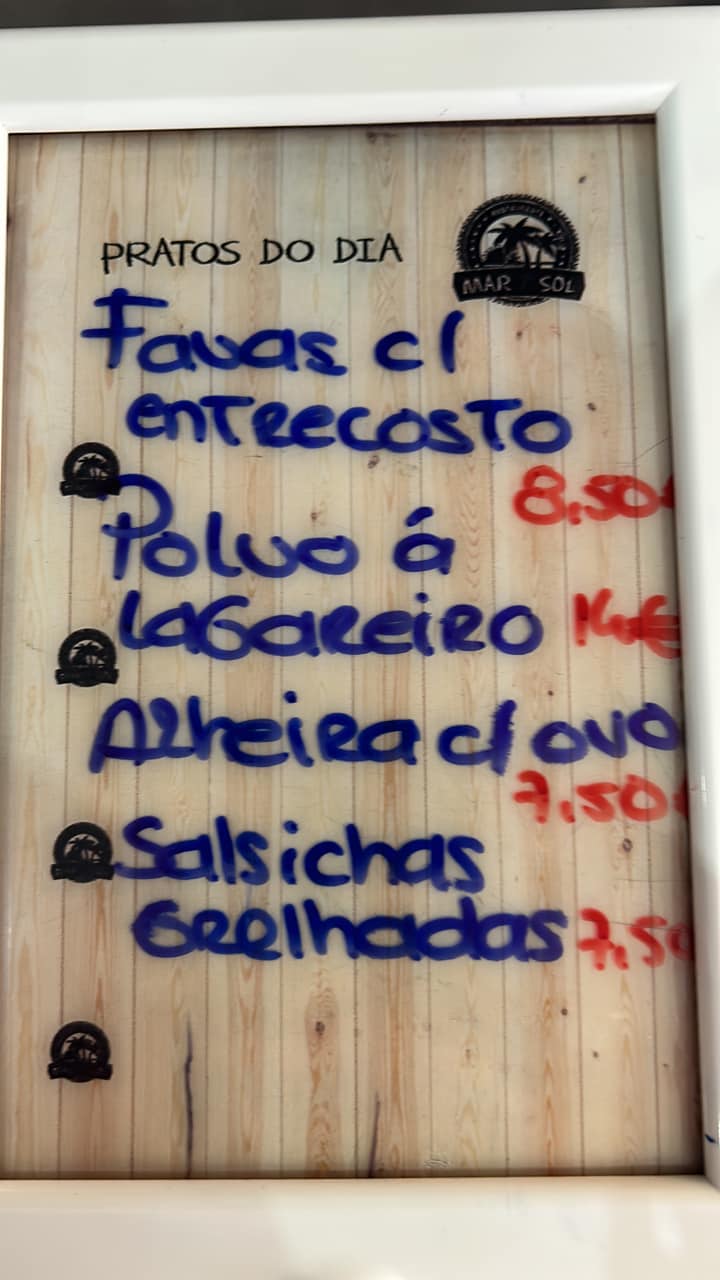 PRATOS DO DIA
MAR SOL
Favas c/
entrecosto
8.50€
Polvo á
Lagareiro 14.€
Alheira c/ ovo
7.50€
Salsichas
Grelhadas 7.50